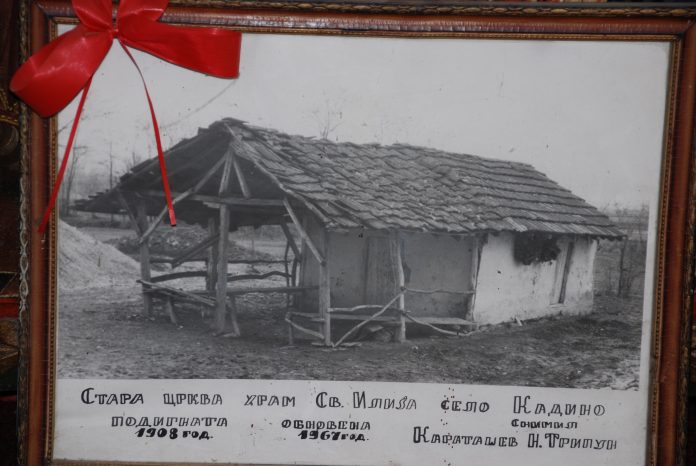 Стара црква храм Св. Илија село Кадино
подигната обновена Снимил
1908 год. 1967 год. Караташев Н. Трипун